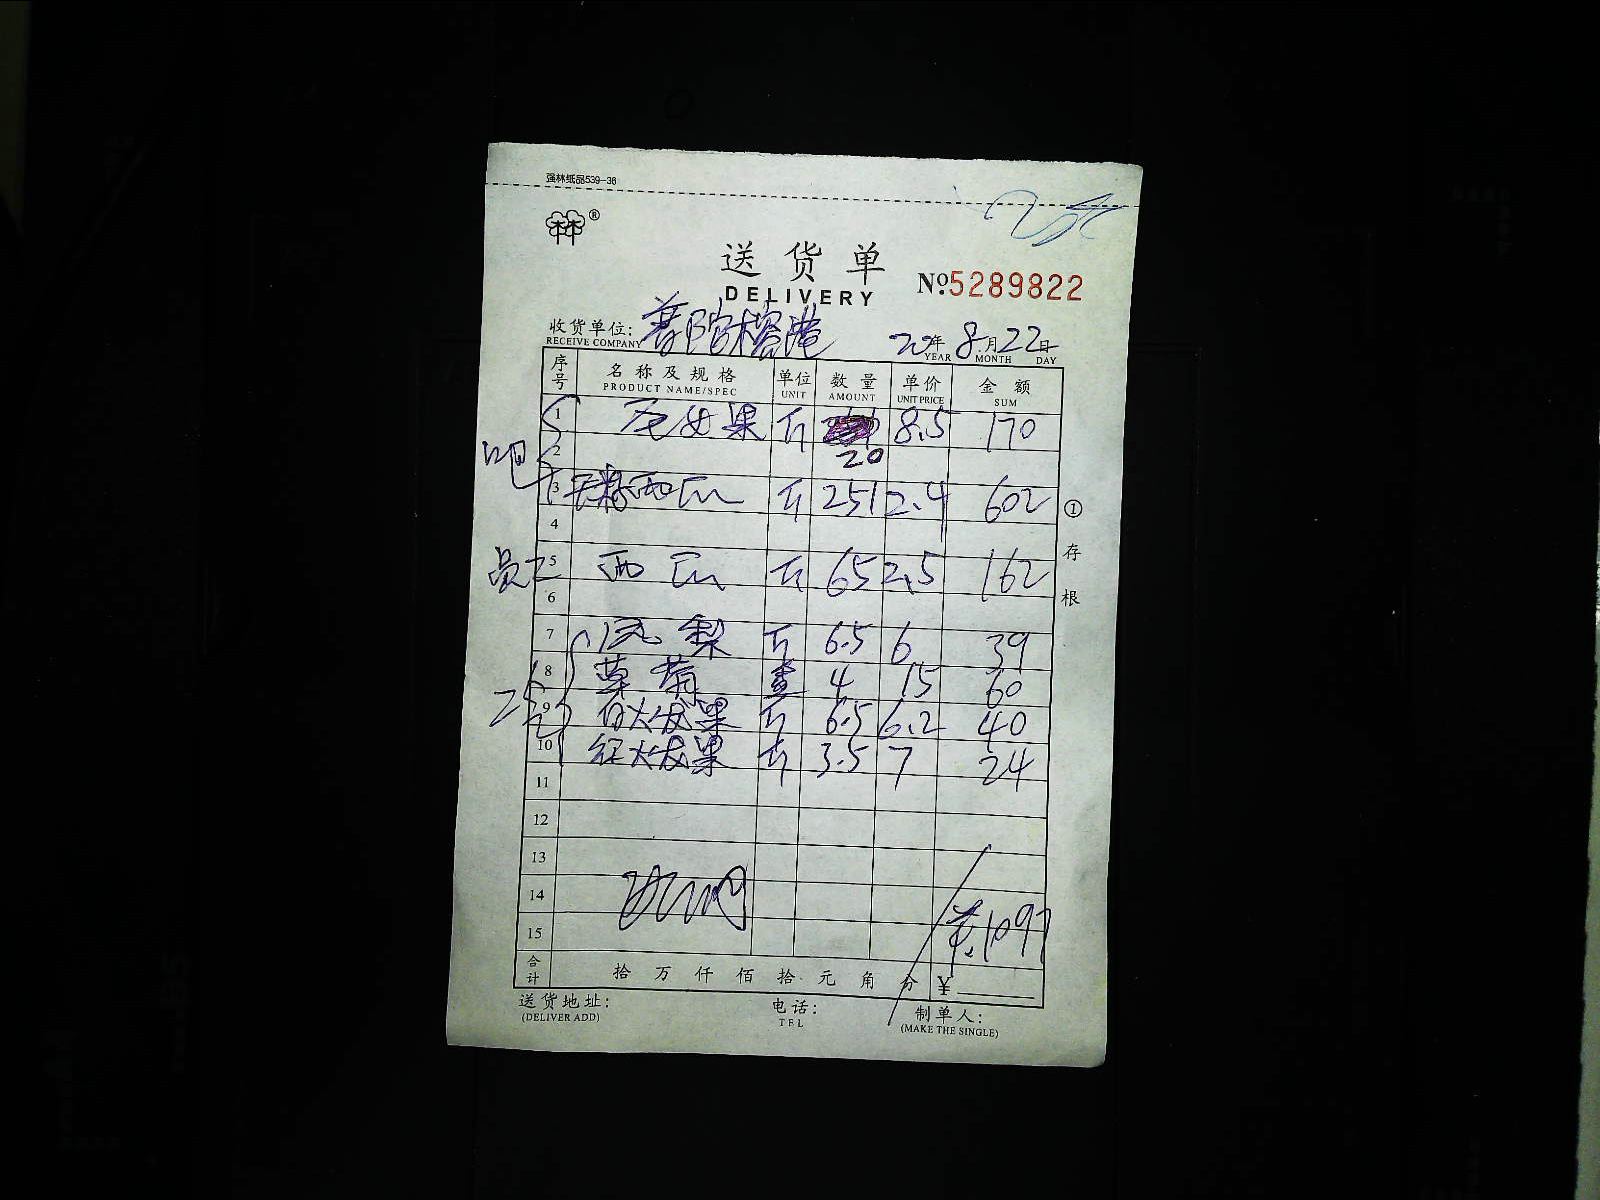 强林纸品539-36
林®
送货单
DELIVERY
№5289822
收货单位: 普陀榕港
RECEIVE COMPANY
20年 8月 22日
YEAR MONTH DAY
序号 名称及规格 单位 数量 单价 金额
PRODUCT NAME/SPEC UNIT AMOUNT UNIT PRICE SUM
1 果 斤 20 8.5 170
吧 2
3 西瓜 斤 251 2.4 602
4
员工 5 西瓜 斤 65 2.5 162
6
7 凤梨 斤 6.5 6 39
8 草莓 盒 4 15 60
9 白火龙果 斤 6.5 6.2 40
10 红火龙果 斤 3.5 7 24
11
12
13
14
15
1097
合计 拾万仟佰拾元角分 ¥
送货地址:
(DELIVER ADD)
电话:
TEL
制单人:
(MAKE THE SINGLE)
①存根